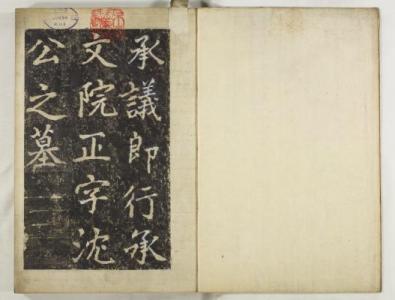 承議郎行承
文院正字沈
公之墓